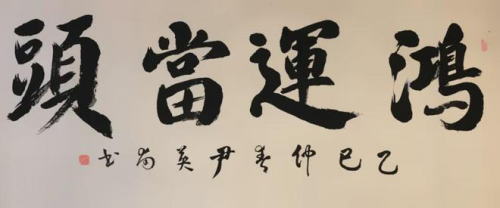 鴻運當頭
乙巳仲春尹英尚书